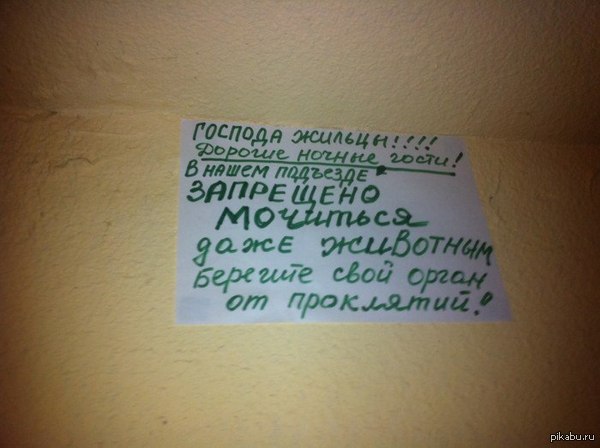 ГОСПОДА ЖИЛЬЦЫ!!!!
Дорогие ночные гости!
В НАШЕМ ПОДЪЕЗДЕ
ЗАПРЕЩЕНО
МОЧИТЬСЯ
даже животным
Берегите свой орган
от проклятий!
pikabu.ru